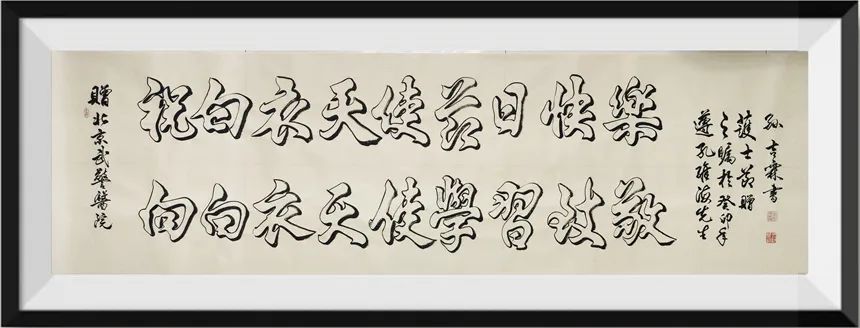 贈北京武警醫院
祝白衣天使节日快樂
向白衣天使學習致敬
遵孔維海先生
之囑於癸卯年
護士節贈
孙書